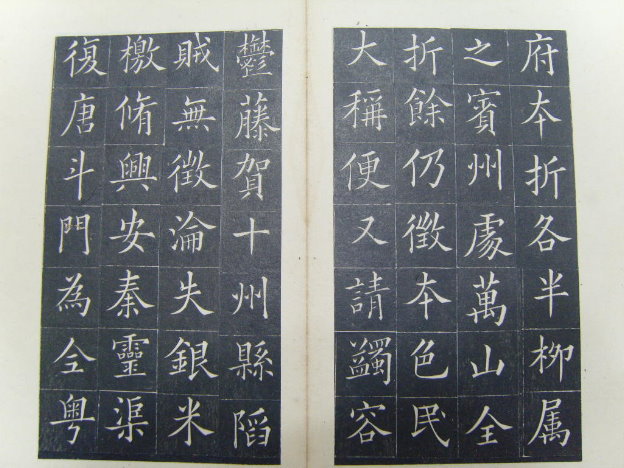 府本折各半柳属
之賓州處萬山全
折餘仍徵本色民
大稱便又請蠲容
鬱藤賀十州縣陷
賊無徵淪失銀米
檄脩興安秦靈渠
復唐斗門為全粤